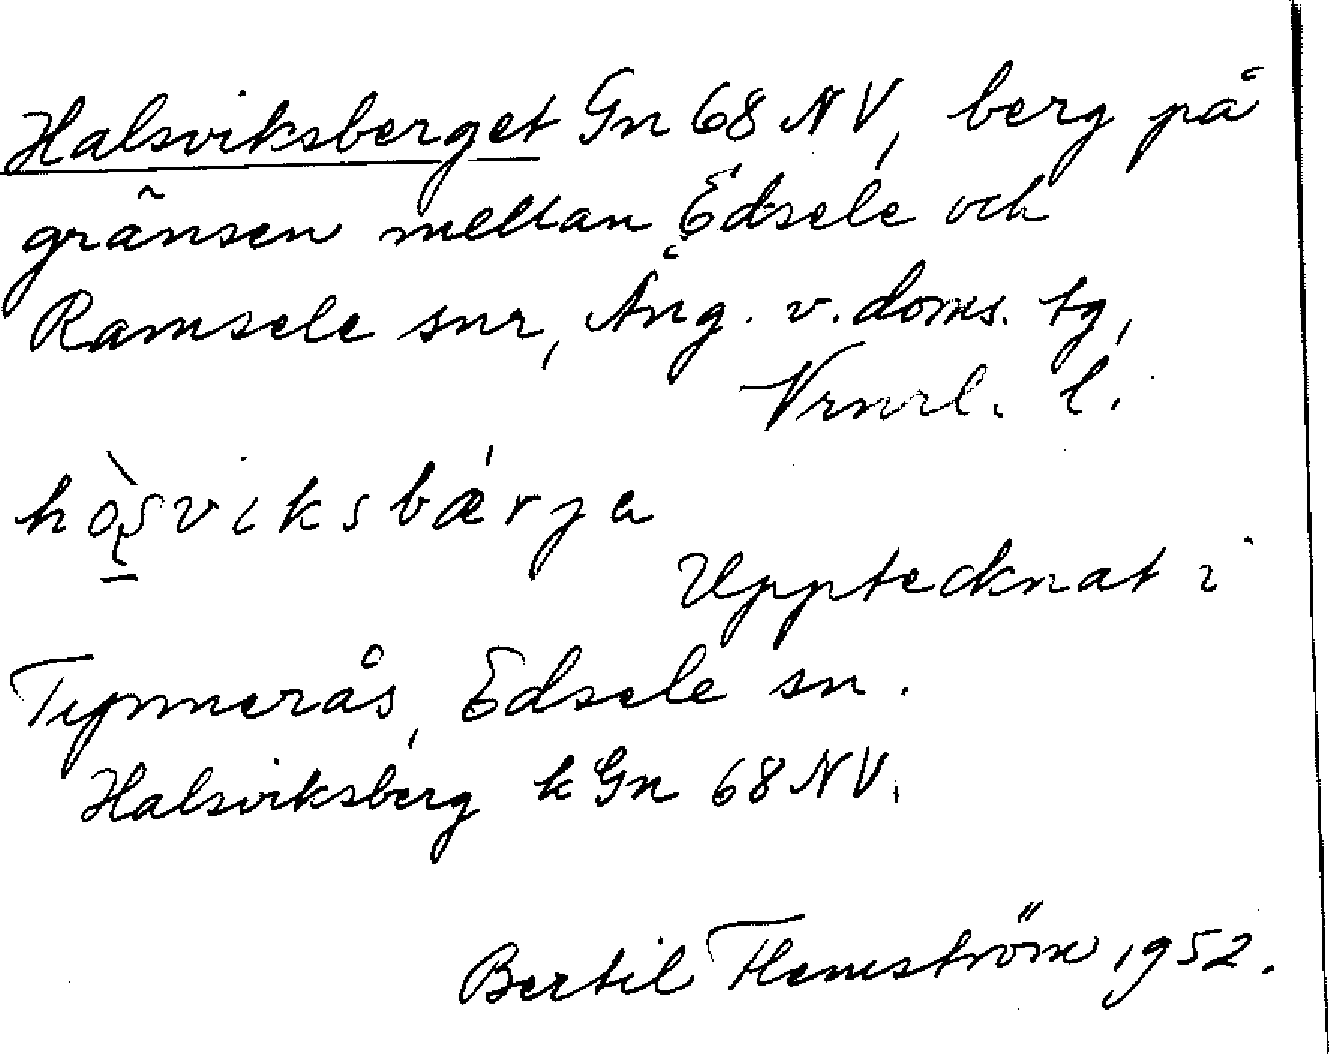 Halsviksberget Gn 68 NV, berg på
gränsen mellan Edsele och
Ramsele snr, Ång. v. doms. tg,
Vrnrl. l.
Upptecknat i
Tynnerås, Edsele sn.
Halsviksberg k Gn 68 NV.
Bertil Flemström 1952.